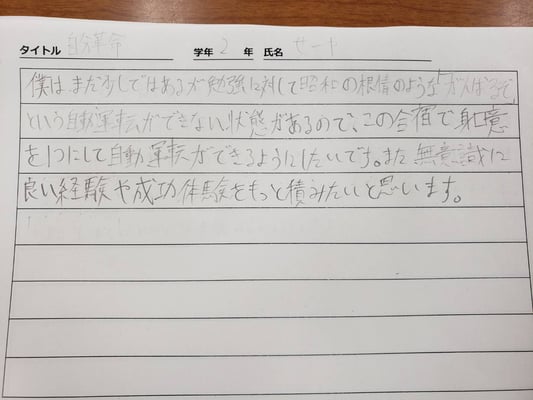 タイトル 自分革命 学年 2 年 氏名 せーや
僕は、まだ少しではあるが勉強に対して昭和の根情のような「がんばるぞ」
という自動運転ができない状態があるので、この合宿で身口意
を1つにして自動運転ができるようにしたいです。また無意識に
良い経験や成功体験をもっと積みたいと思います。